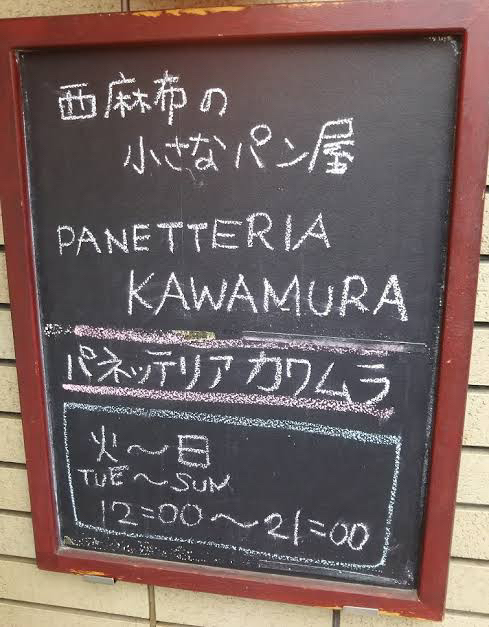 西麻布の
小さなパン屋
PANETTERIA
KAWAMURA
パネッテリア カワムラ
火〜日
TUE〜SUN
12=00〜21=00